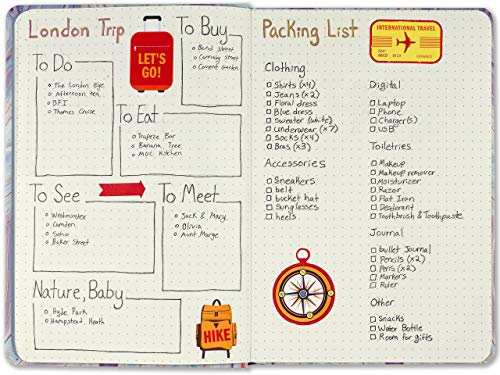 London Trip
LET'S
GO!
To Buy
Bond street
Carnaby street
Covent Garden
To Do
The London Eye
Afternoon tea
B.F.I.
Thames Cruise
To Eat
Trapeze Bar
Banana Tree
MOC Kitchen
To See
Westminster
Camden
Soho
Baker Street
To Meet
Jack & Mary
Olivia
Aunt Marge
Nature, Baby
Hyde Park
Hampstead Heath
HIKE
Packing List
INTERNATIONAL TRAVEL
Clothing
Shirts (x4)
Jeans (x2)
Floral dress
Blue dress
Sweater (white)
Underwear (x7)
Socks (x4)
Bras (x3)
Accessories
Sneakers
belt
bucket hat
Sunglasses
heels
Digital
Laptop
Phone
Charger(s)
USB
Toiletries
Makeup
Makeup remover
Moisturizer
Razor
Flat Iron
Deodorant
Toothbrush & Toothpaste
Journal
bullet Journal
Pencils (x2)
Pens (x2)
Markers
Ruler
Other
Snacks
Water Bottle
Room for gifts